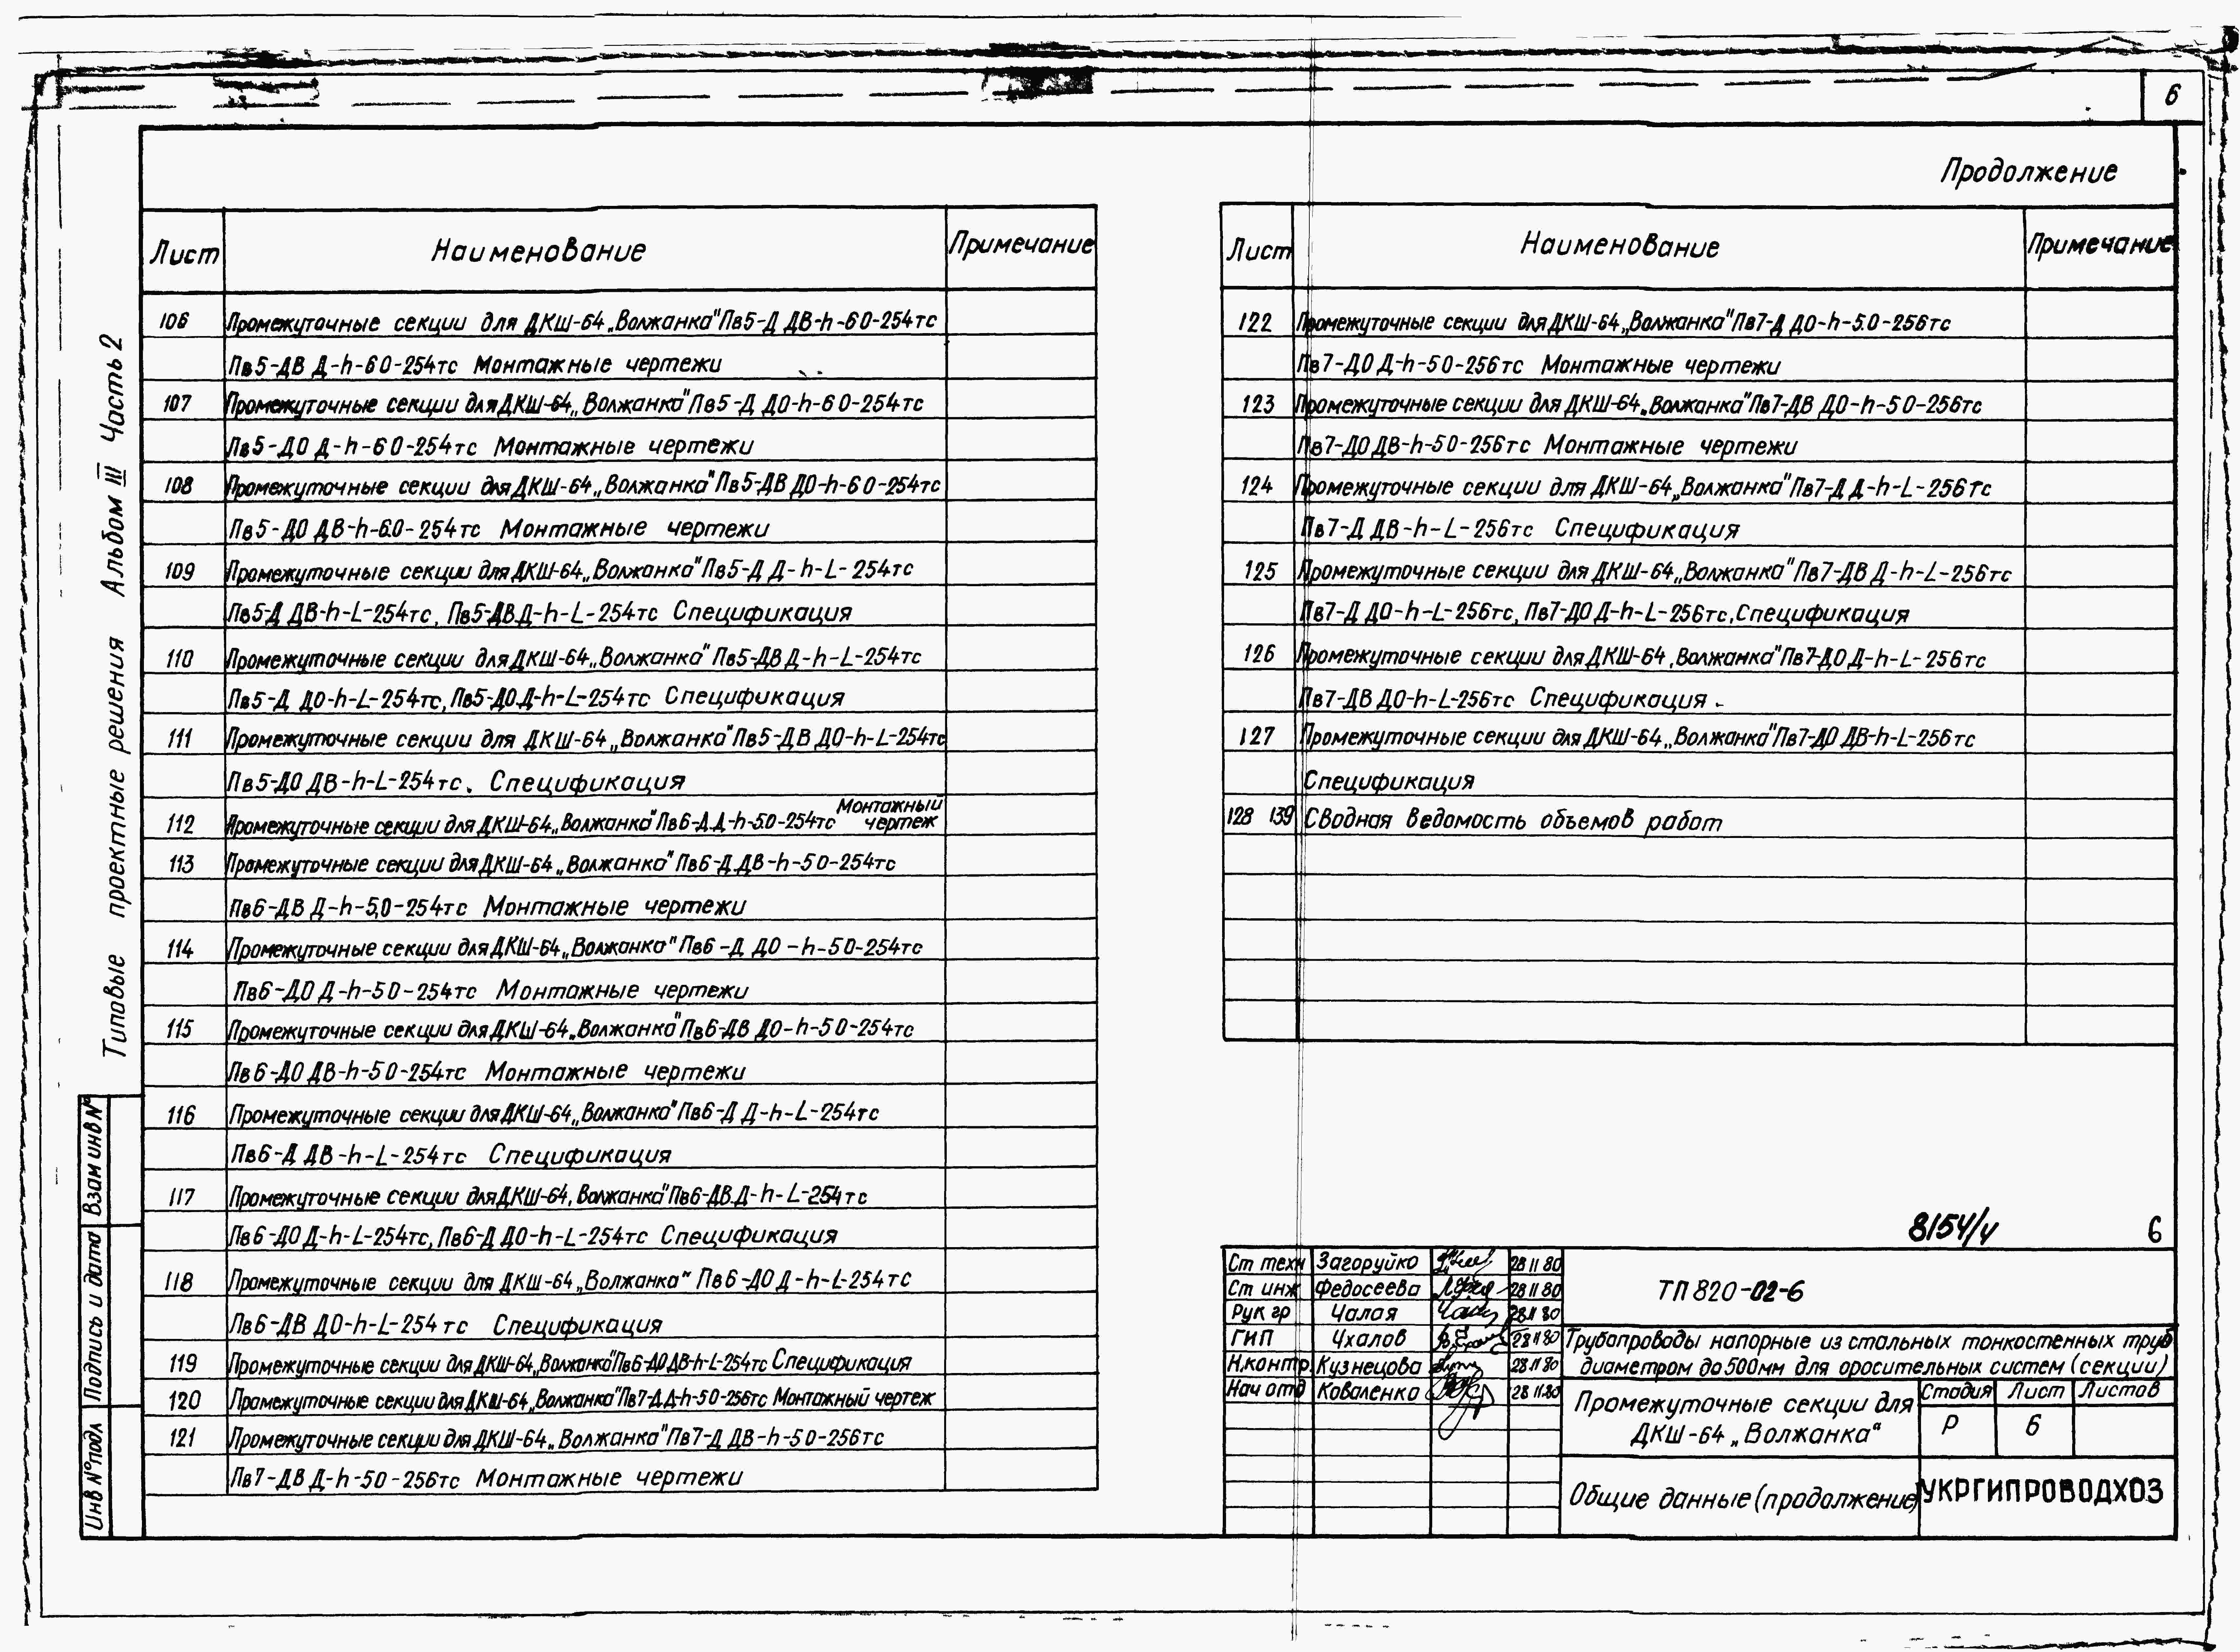 6
Продолжение
Типовые проектные решения Альбом III Часть 2
Лист Наименование Примечание
106 Промежуточные секции для ДКШ-64 „Волжанка" Пв5-Д ДВ-h-60-254тс
Пв5-ДВ Д-h-60-254тс Монтажные чертежи
107 Промежуточные секции для ДКШ-64 „Волжанка" Пв5-Д ДО-h-60-254тс
Пв5-ДО Д-h-60-254тс Монтажные чертежи
108 Промежуточные секции для ДКШ-64 „Волжанка" Пв5-ДВ ДО-h-60-254тс
Пв5-ДО ДВ-h-6.0-254тс Монтажные чертежи
109 Промежуточные секции для ДКШ-64 „Волжанка" Пв5-Д Д-h-L-254тс
Пв5-Д ДВ-h-L-254тс, Пв5-ДВ.Д-h-L-254тс Спецификация
110 Промежуточные секции для ДКШ-64 „Волжанка" Пв5-ДВ Д-h-L-254тс
Пв5-Д ДО-h-L-254тс, Пв5-ДО.Д-h-L-254тс Спецификация
111 Промежуточные секции для ДКШ-64 „Волжанка" Пв5-ДВ ДО-h-L-254тс
Пв5-ДО ДВ-h-L-254тс. Спецификация
112 Промежуточные секции для ДКШ-64 „Волжанка" Пв6-Д.Д-h-5.0-254тс Монтажный чертеж
113 Промежуточные секции для ДКШ-64 „Волжанка" Пв6-Д.ДВ-h-50-254тс
Пв6-ДВ Д-h-5,0-254тс Монтажные чертежи
114 Промежуточные секции для ДКШ-64 „Волжанка" Пв6-Д ДО-h-50-254тс
Пв6-ДО Д-h-50-254тс Монтажные чертежи
115 Промежуточные секции для ДКШ-64 „Волжанка" Пв6-ДВ ДО-h-50-254тс
Пв6-ДО ДВ-h-50-254тс Монтажные чертежи
116 Промежуточные секции для ДКШ-64 „Волжанка" Пв6-Д Д-h-L-254тс
Пв6-Д ДВ-h-L-254тс Спецификация
117 Промежуточные секции для ДКШ-64, Волжанка" Пв6-ДВ.Д-h-L-254тс
Пв6-ДО Д-h-L-254тс, Пв6-Д ДО-h-L-254тс Спецификация
118 Промежуточные секции для ДКШ-64 „Волжанка" Пв6-ДО Д-h-L-254тс
Пв6-ДВ ДО-h-L-254тс Спецификация
119 Промежуточные секции для ДКШ-64 „Волжанка" Пв6-ДО ДВ-h-L-254тс Спецификация
120 Промежуточные секции для ДКШ-64 „Волжанка" Пв7-Д.Д-h-50-256тс Монтажный чертеж
121 Промежуточные секции для ДКШ-64 „Волжанка" Пв7-Д ДВ-h-50-256тс
Пв7-ДВ Д-h-50-256тс Монтажные чертежи
Лист Наименование Примечание
122 Промежуточные секции для ДКШ-64 „Волжанка" Пв7-Д ДО-h-5.0-256тс
Пв7-ДО Д-h-50-256тс Монтажные чертежи
123 Промежуточные секции для ДКШ-64 „Волжанка" Пв7-ДВ ДО-h-50-256тс
Пв7-ДО ДВ-h-50-256тс Монтажные чертежи
124 Промежуточные секции для ДКШ-64 „Волжанка" Пв7-Д Д-h-L-256тс
Пв7-Д ДВ-h-L-256тс Спецификация
125 Промежуточные секции для ДКШ-64 „Волжанка" Пв7-ДВ Д-h-L-256тс
Пв7-Д ДО-h-L-256тс, Пв7-ДО Д-h-L-256тс. Спецификация
126 Промежуточные секции для ДКШ-64, Волжанка" Пв7-ДО Д-h-L-256тс
Пв7-ДВ ДО-h-L-256тс Спецификация
127 Промежуточные секции для ДКШ-64 „Волжанка" Пв7-ДО ДВ-h-L-256тс
Спецификация
128 139 Сводная ведомость объемов работ
8154/4 6
Ст техн Загоруйко 28 11 80
Ст инж Федосеева 28 11 80
Рук гр Чалая 28 11 80
ГИП Чхалов 28 11 80
Н.контр. Кузнецова 28 11 80
Нач отд Коваленко 28 11.80
ТП 820-02-6
Трубопроводы напорные из стальных тонкостенных труб
диаметром до 500мм для оросительных систем (секции)
Промежуточные секции для
ДКШ-64 „Волжанка"
Стадия Лист Листов
Р 6
Общие данные (продолжение)
УКРГИПРОВОДХОЗ
Взам инв №
Подпись и дата
Инв № подл